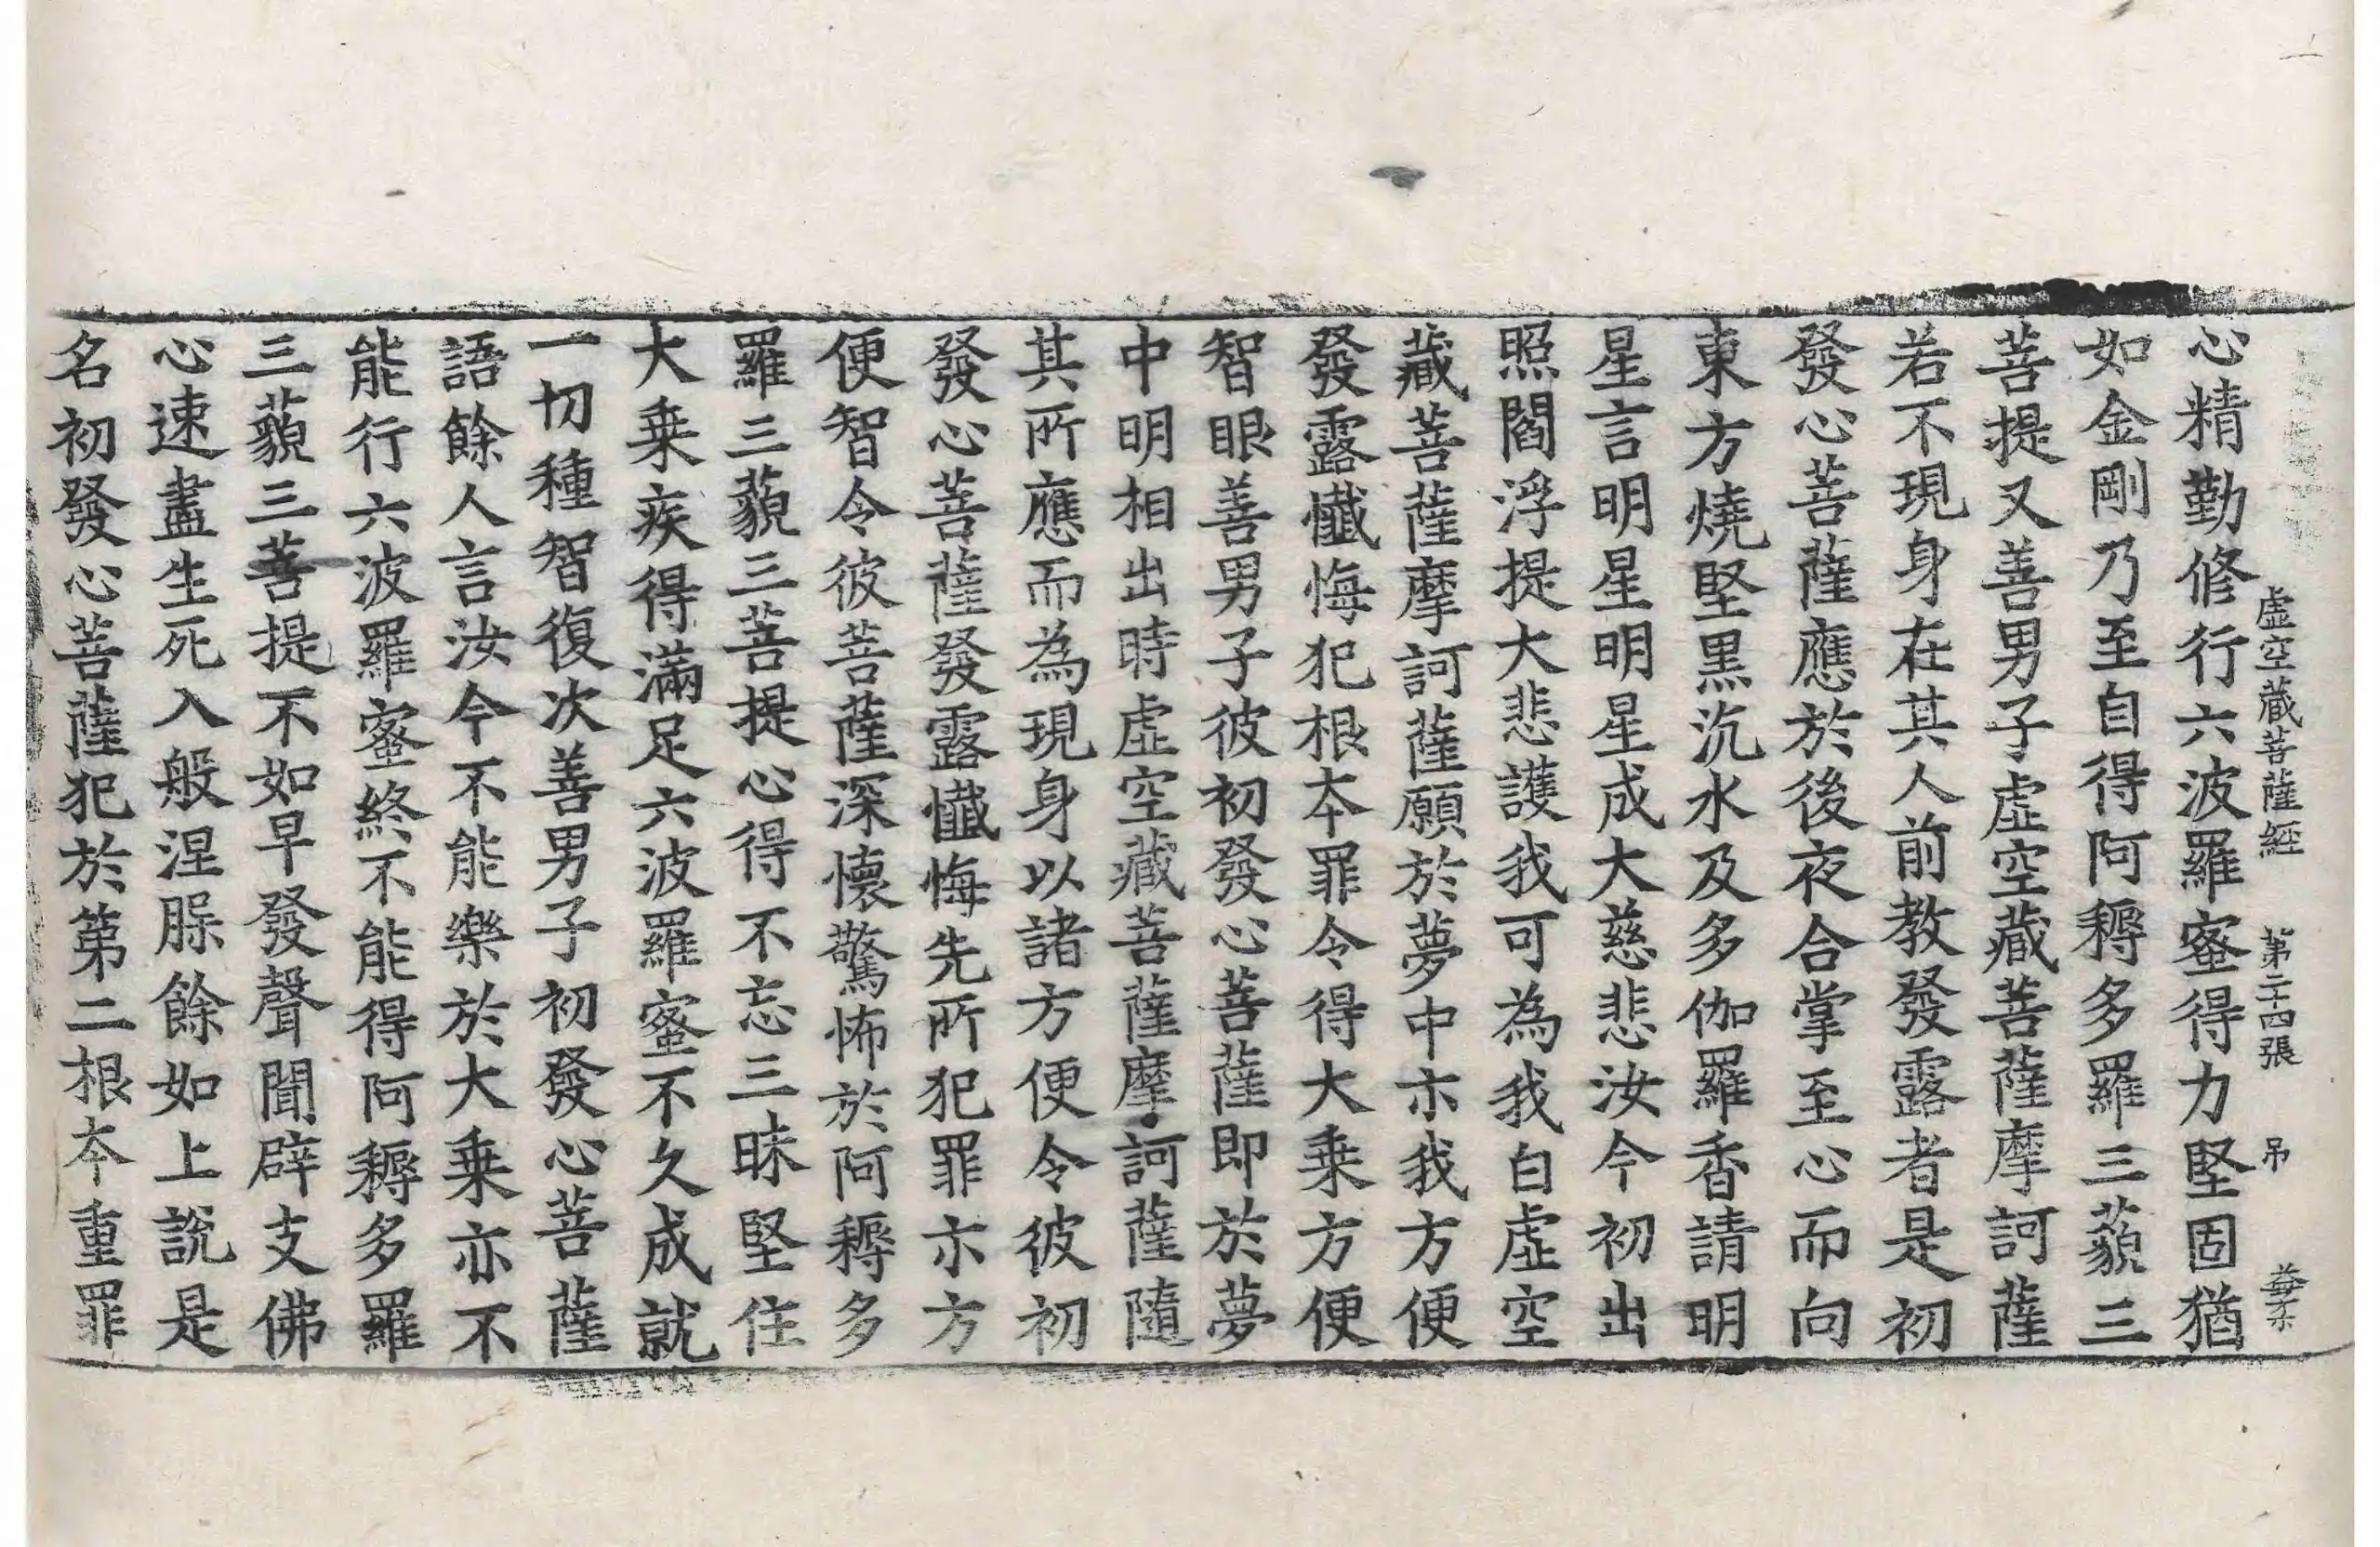 虛空藏菩薩經 第二十四張 吊
心精勤修行六波羅蜜得力堅固猶
如金剛乃至自得阿耨多羅三藐三
菩提又善男子虛空藏菩薩摩訶薩
若不現身在其人前教發露者是初
發心菩薩應於後夜合掌至心而向
東方燒堅黑沉水及多伽羅香請明
星言明星明星成大慈悲汝今初出
照閻浮提大悲護我可為我白虛空
藏菩薩摩訶薩願於夢中示我方便
發露懺悔犯根夲罪令得大乗方便
智眼善男子彼初發心菩薩即於夢
中明相出時虛空藏菩薩摩訶薩隨
其所應而為現身以諸方便令彼初
發心菩薩發露懺悔先所犯罪示方
便智令彼菩薩深懷驚怖於阿耨多
羅三藐三菩提心得不忘三昧堅住
大乗疾得滿足六波羅蜜不久成就
一切種智復次善男子初發心菩薩
語餘人言汝今不能樂於大乗亦不
能行六波羅蜜終不能得阿耨多羅
三藐三菩提不如早發聲聞辟支佛
心速盡生死入般涅槃餘如上說是
名初發心菩薩犯於第二根夲重罪